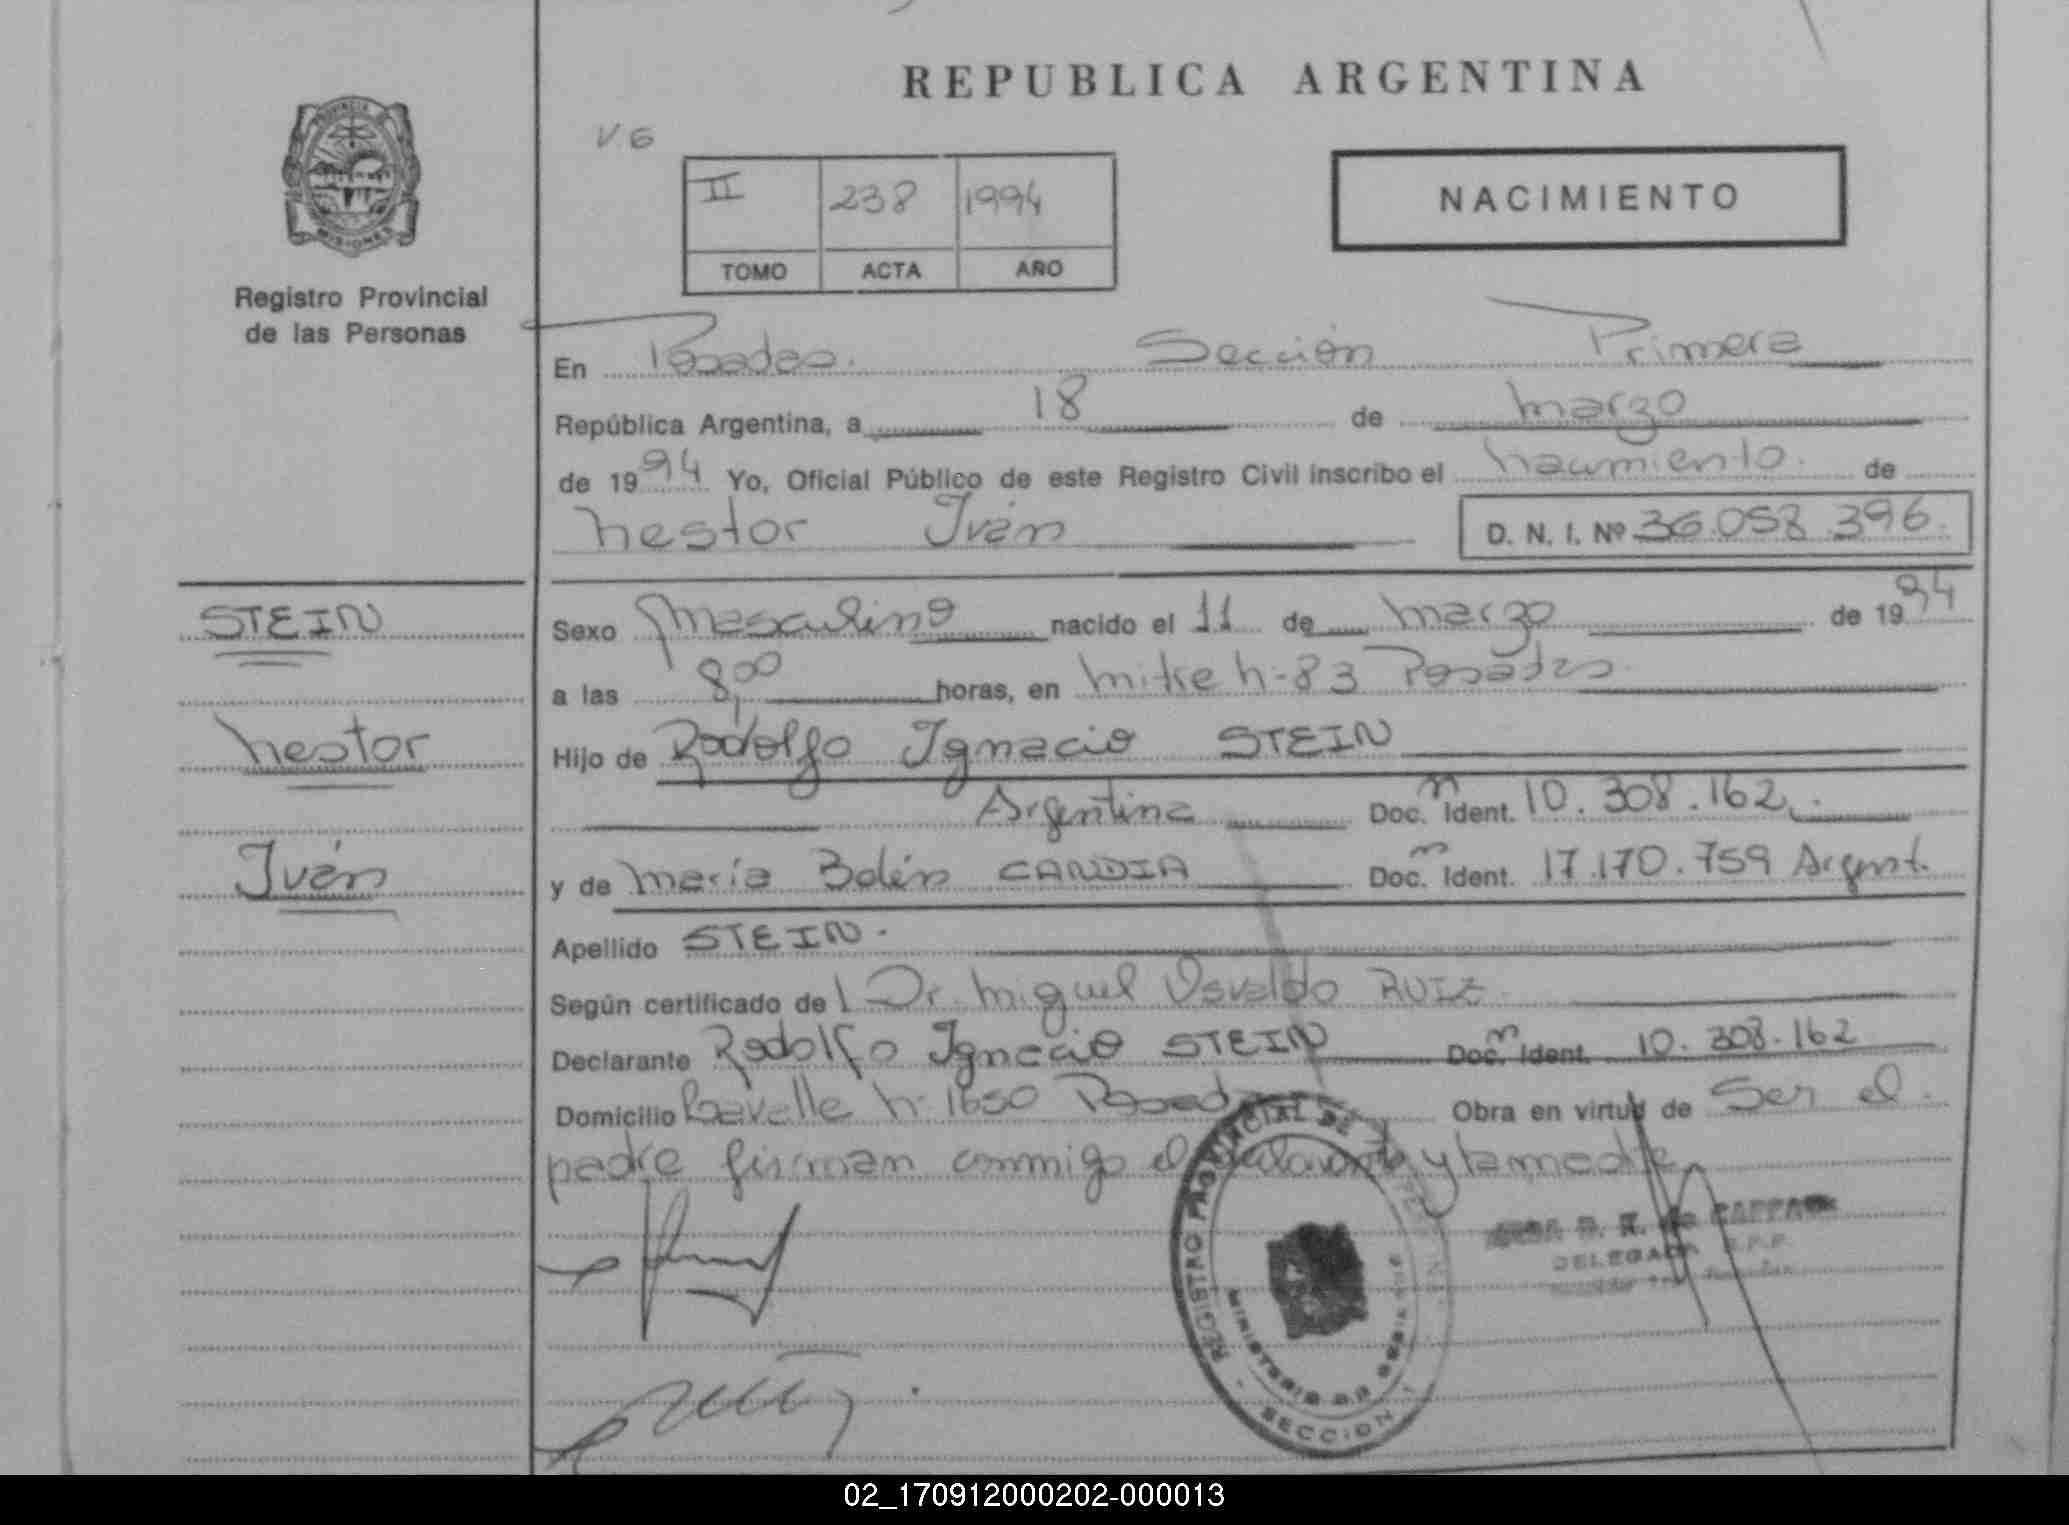 REPUBLICA ARGENTINA
V. 6
II 238 1994
TOMO ACTA AÑO
NACIMIENTO
PROVINCIA DE
MISIONES
Registro Provincial
de las Personas
En Posadas. Sección Primera
República Argentina, a 18 de marzo
de 1994 Yo, Oficial Público de este Registro Civil inscribo el nacimiento. de
Nestor Iván D. N. I. Nº 36.058.396.
STEIN
Nestor
Iván
Sexo masculino nacido el 11 de marzo de 1994
a las 8,00 horas, en Mitre N-83 Posadas.
Hijo de Rodolfo Ignacio STEIN
Argentina Doc. m Ident. 10.308.162.
y de María Belén CANDIA Doc. m Ident. 17.170.759 Argent.
Apellido STEIN.
Según certificado de l Dr. Miguel Osvaldo RUIZ
Declarante Rodolfo Ignacio STEIN Doc. m Ident. 10.308.162
Domicilio N-1650 Posadas Obra en virtud de Ser el
padre firman conmigo el declarante y la madre
REGISTRO PROVINCIAL DE LAS PERSONAS
MINISTERIO DE
SECCION 1
D. R. de
DELEGADA R.P.P.
02_170912000202-000013